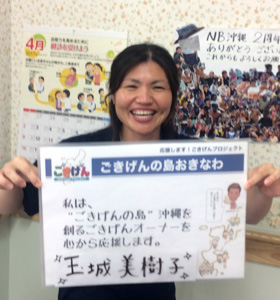 4月
NB沖縄 2周年
ありがとうござい
これからもよろしくお願
応援します！ごきげんプロジェクト
ごきげん
ごきげんの島おきなわ
私は、
"ごきげんの島"沖縄を
創るごきげんオーナーを
心から応援します。
玉城美樹子